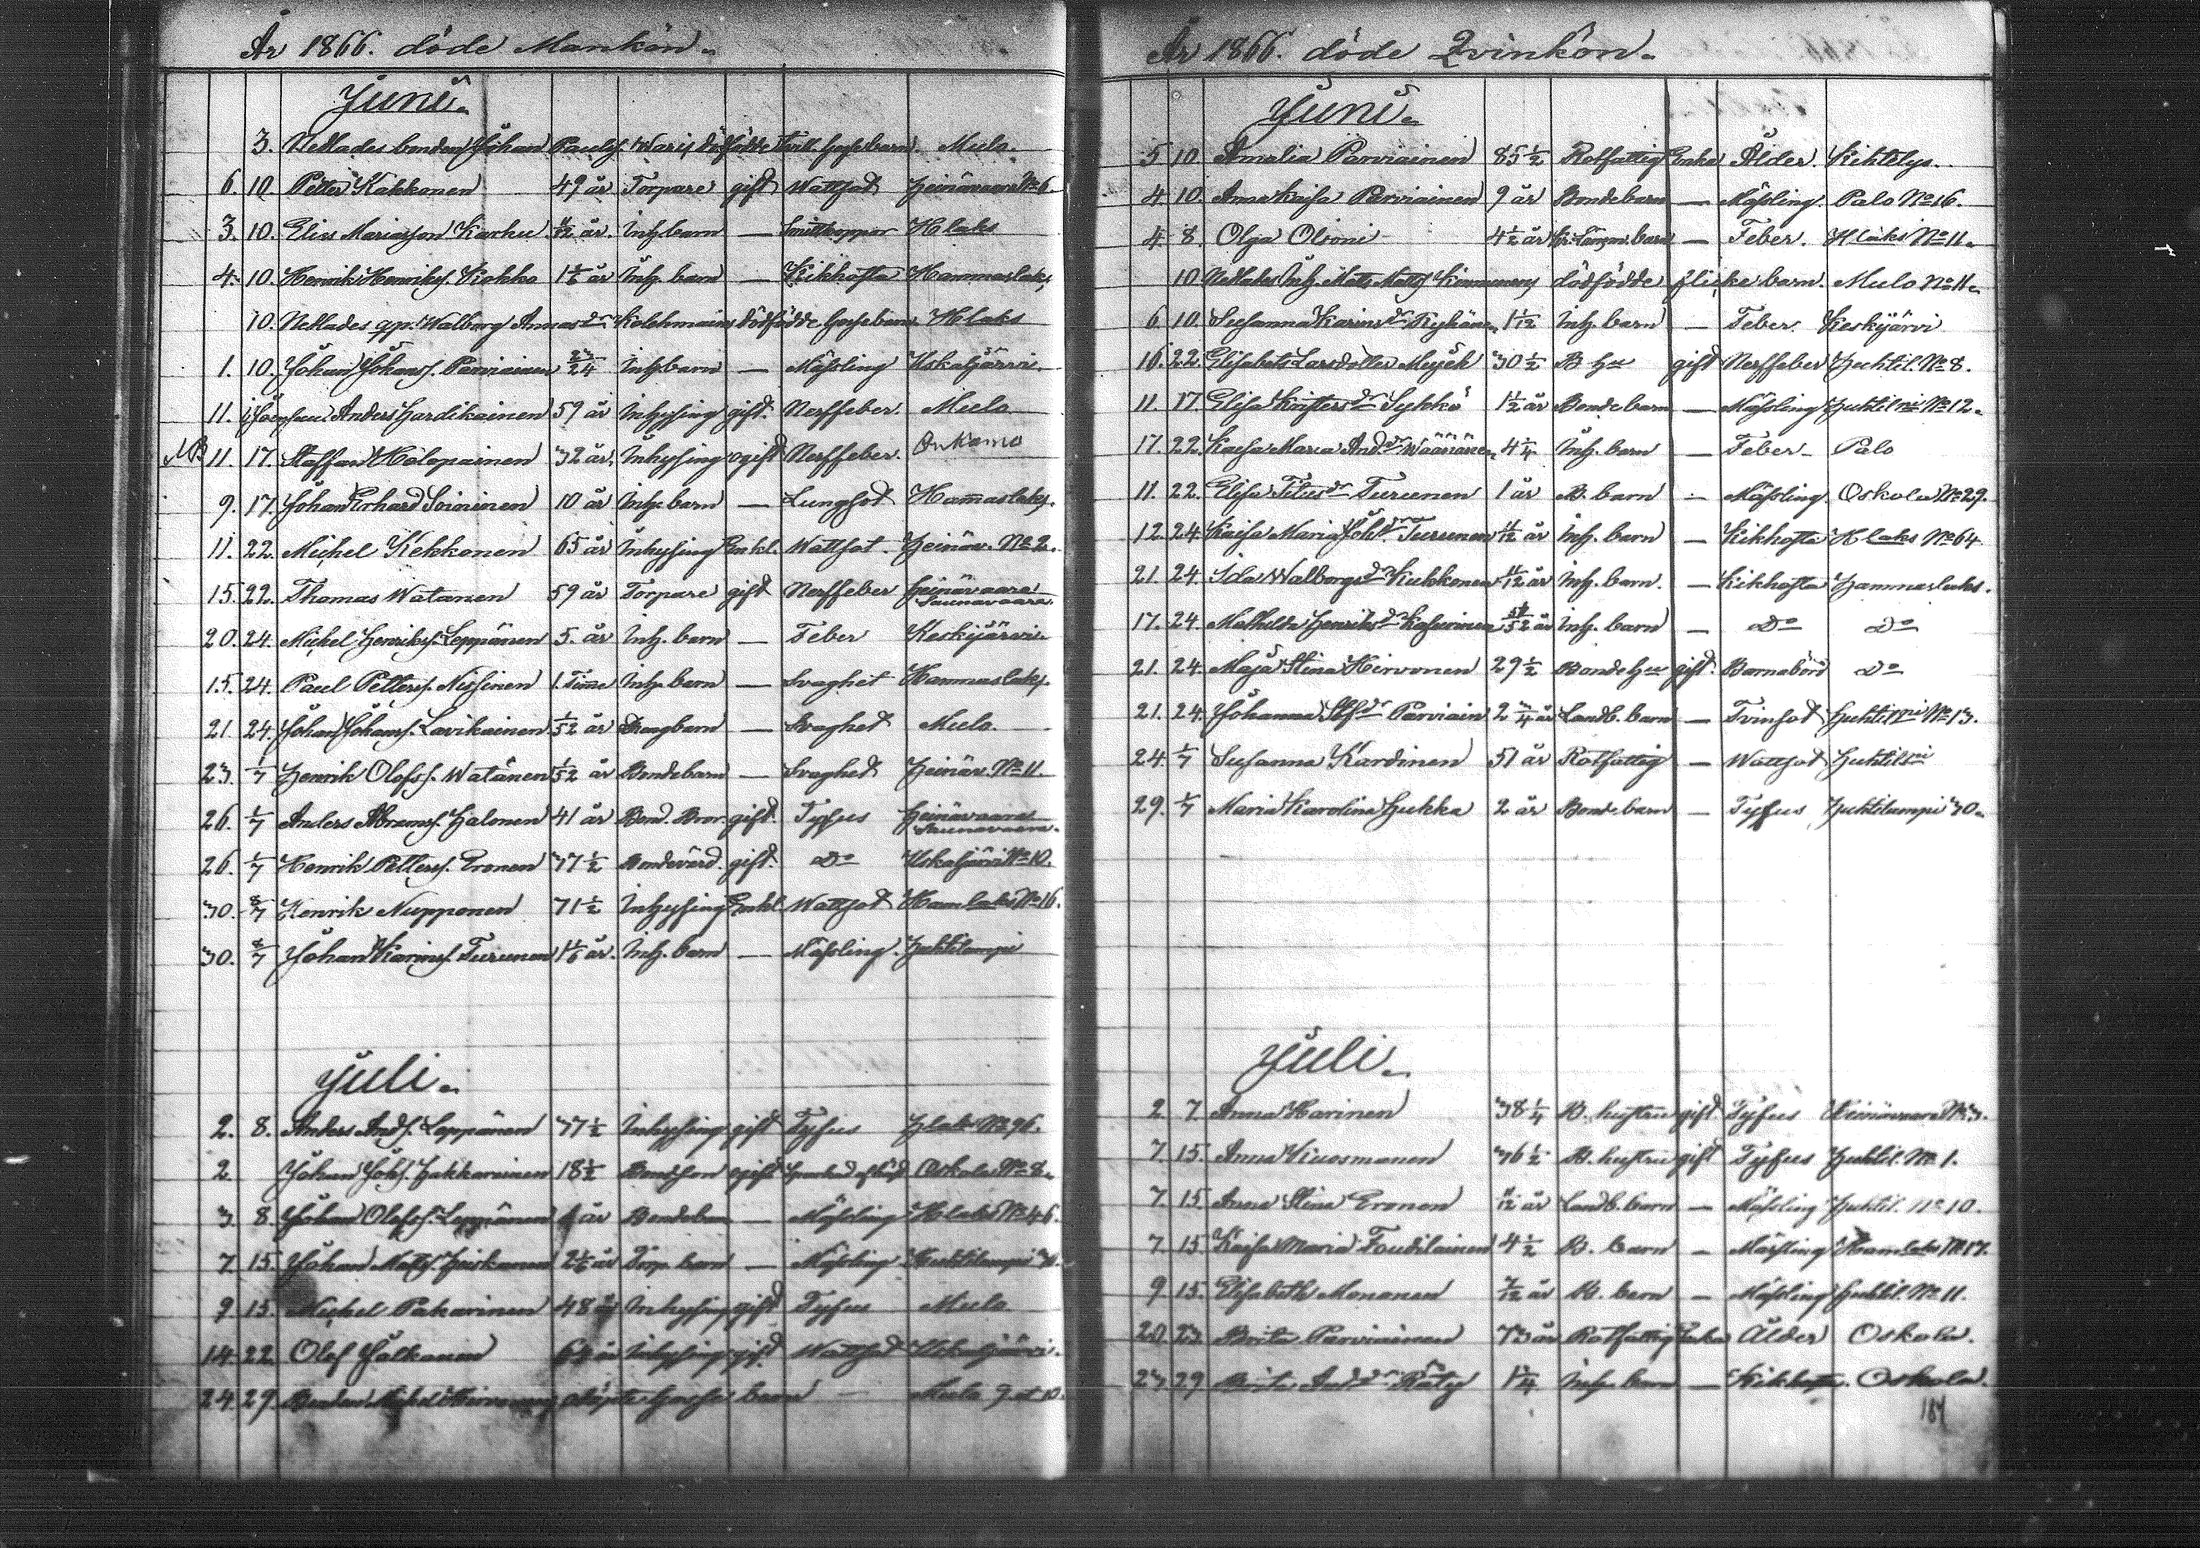 År 1866. döde Mankön.
Juni.
3. Neklades bonden Johan Paulss. Waris dödfödde tvill. gossebarn Mulo.
6. 10. Petter Kakkonen 49 år Torpare gift Wattsot Heinävaara No 6.
3. 10. Elias Mariasson Karhu år. Inh. barn — Smittkoppor H laks
4. 10. Henrik Henrikss. Kiokko 1 1/6 år Inh. barn — Kikhosta Hammaslaks
10. Neklades qp. Walborg Annasdr Kolehmains dödfödde Gossebarn H laks
1. 10. Johan Johanss. Parviainen 23/24 Inh barn — Mässling Uskaljärvi.
11. Anders Hardikainen 59 år Inhysing gift. Nerffeber. Mulo
NB 11. 17. Staffan Holopainen 32 år. Inhysing ogift Nerffeber. Onkamo
9. 17. Johan Erhard Soininen 10 år Inh. barn — Lungsot Hammaslaks.
11. 22. Michel Kekkonen 65 år Inhysing Enkl. Wattsot. Heinäv. No 2.
15. 22. Thomas Watanen 59 år Torpare gift Nerffeber Heinävaara Saunavaara
20. 24. Michel Henrikss. Leppänen 5. år Inh. barn — Feber Keskijärvi
15. 24. Paul Petterss. Nissinen 1. Timme Inh. barn — Svaghet Hammaslaks.
21 24. Johan Johanss. Lavikainen 1/52 år Drängbarn — Svaghet Mulo.
23. 1/7 Henrik Olofss. Watanen 1/52 år Bondebarn — Svaghed Heinäv. No 11.
26. 1/7 Anders Abramss. Halonen 41 år Bond. Bror. gift. Tyfus Heinävaara Saunavaara.
26. 1/7 Henrik Petterss. Eronen 37 1/2 Bondevärd. gift. Do Uskaljärvi No 10.
30. 8/7 Henrik Nupponen 71 1/2 Inhysing Enkl. Wattsot Ham laks No 16.
30. 8/7 Johan Karinss. Turunen 1 1/6 år. Inh. barn — Mässling. Huhtilampi
Juli.
2. 8. Anders Ands. Leppänen 37 1/2 Inhysing gift Tyfus H laks No 96.
2 Johan Johs. Hakkarainen 18 1/2 Bondeson ogift Oskola No 8.
3 8. Johan Olofss. Leppänen år Bondebarn — Mässling H laks No 46.
7. 15. Johan Matss. Heiskanen 2 1/6 år Torp. barn — Mässling Huhtilampi
9 15. Michel Pakarinen 48 år Inhysing gift Tyfus Mulo
14. 22 Olof Jalkanen år Inhysing gift. Wattsot Uskaljärvi.
24. 29. Bonden Michel Hirvonens döpte Gosse barn — Mulo 9 et 10.
År 1866. döde Qvinkön.
Juni.
5 10 Amalia Parviainen 85 1/2 Rotfattig Enka Ålder. Kihtelys.
4 10. Anna Kaisa Parviainen 9 år Bondebarn — Mässling. Palo No 16.
4 8. Olga Oisoni 4 1/2 år barn — Feber. H laks No 11.
10 Nekladés Inh. Matts Matts. Kinnunens dödfödde flicke barn. Mulo No 11.
6 10 Susanna Karinsdr Ryhänen 1 1/12 Inh. barn — Feber. Keskijärvi
16. 22. Elisabeth Larsdotter Mujeh 30 1/2 B Hu gift Nerffeber Huhtil. No 8.
11. 17 Elisa Kristersdr Sykkö 1 1/2 år Bondebarn — Mässling Huhtilpi No 12.
17. 22. Kaisa Maria Andsdr Wäänänen 4 1/4 Inh. barn — Feber — Palo
11. 22. Elisa Titusdr Turunen 1 år B. barn — Mässling. Oskola No 29.
12. 24. Kaisa Maria Johsdr Turunen år Inh. barn — Kikhosta H laks No 64.
21 24. Ida Walborgsdr Kukkonen 11/12 år Inh. barn. — Kikhosta Hammaslaks.
17. 24. Mathilda Henriksdr Kasurinen år Inh. barn — Do Do
21. 24. Maja Stina Hirvonen 29 1/2 Bonde Hu gift. Barnabörd Do
21. 24. Johanna Parviain 2 3/4 år Landb. barn — Tvinsot Huhtilpi No 13.
24. 1/7 Susanna Kardinen 51 år Rotfattig — Wattsot Huhtilpi
29. 1/7 Maria Karolina Hukka 2 år Bondebarn — Tyfus Huhtilampi 30.
Juli.
2 7. Anna Harinen 38 1/4 B. hustru gift Tyfus Heinävaara No 3.
7. 15. Anna Kuosmanen 36 1/2 B. hustru gift Tyfus Huhtil. No 1.
7. 15. Anna Stina Eronen år Landb. barn — Mässling Huhtil. No 10.
7. 15 Kaisa Maria Toudilainen 4 1/2 B. barn — Mässling Ham laks No 17.
9 15. Elisabeth Mononen 7/12 år B. barn — Mässling Huhtil. No 11.
20. 23. Brita Parviainen 73 år Rotfattig Enka Ålder Oskola.
23 29 Brita Andsdr Räty 1 1/4 Inh. barn — Kikhosta. Oskola.
184